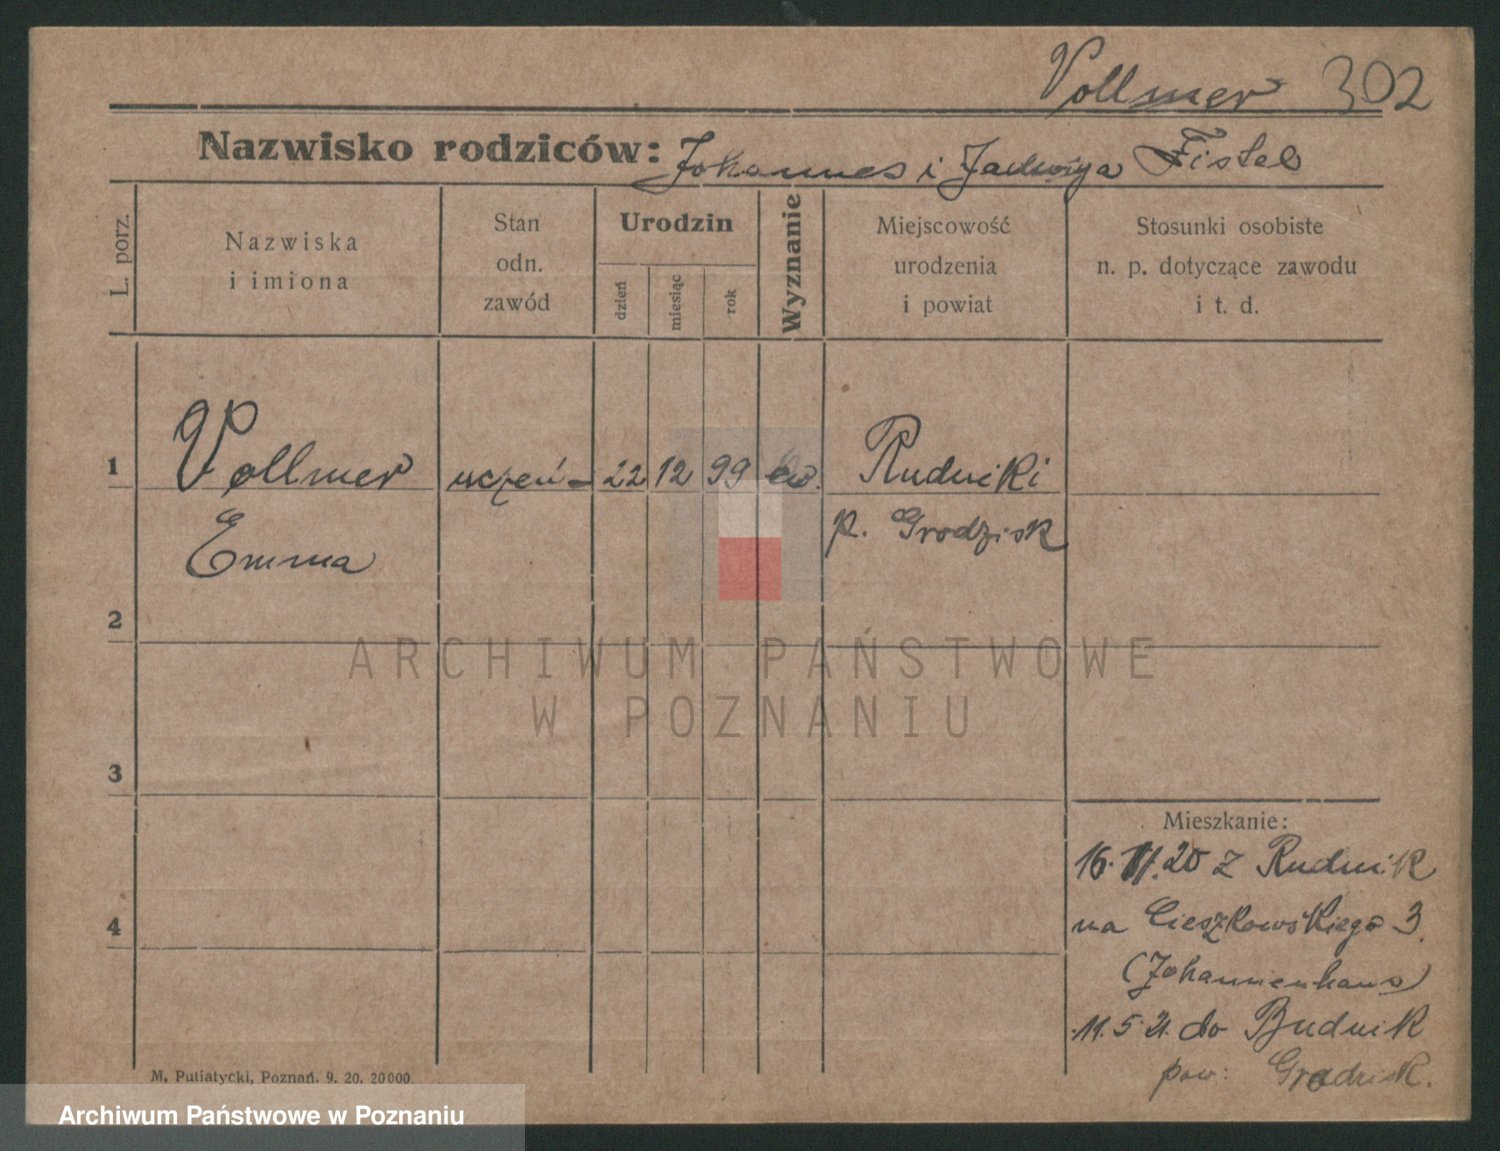 Vollmer 302
Nazwisko rodziców: Johannes i Jadwiga Fistel
L. porz.
Nazwiska
i imiona
Stan
odn.
zawód
Urodzin
dzień
miesiąc
rok
Wyznanie
Miejscowość
urodzenia
i powiat
Stosunki osobiste
n. p. dotyczące zawodu
i t. d.
1 Vollmer uczeń 22 12 99 ew. Rudniki
Emma p. Grodzisk
2
3
4
Mieszkanie:
16. 11. 20 z Rudnik
na Cieszkowskiego 3.
(Johannenhaus)
11. 5. 21. do Rudnik
pow: Grodzisk.
M. Putiatycki, Poznań. 9. 20. 20000.
ARCHIWUM PAŃSTWOWE
W POZNANIU
Archiwum Państwowe w Poznaniu